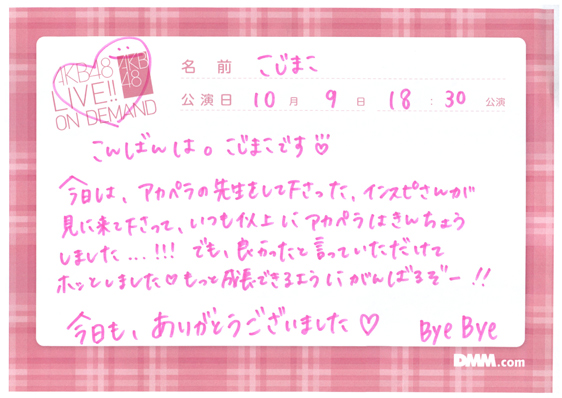 AKB48
LIVE!!
ON DEMAND
AKB
48
名 前 こじまこ
公演日 10月 9日 18:30 公演
こんばんは。こじまこです♡
今日は、アカペラの先生をして下さった、インスピさんが
見に来て下さって、いつも以上にアカペラはきんちょう
しました...!!! でも、良かったと言っていただけて
ホッとしました♡もっと成長できるようにがんばるぞー!!
今日も、ありがとうございました♡ Bye Bye
DMM.com